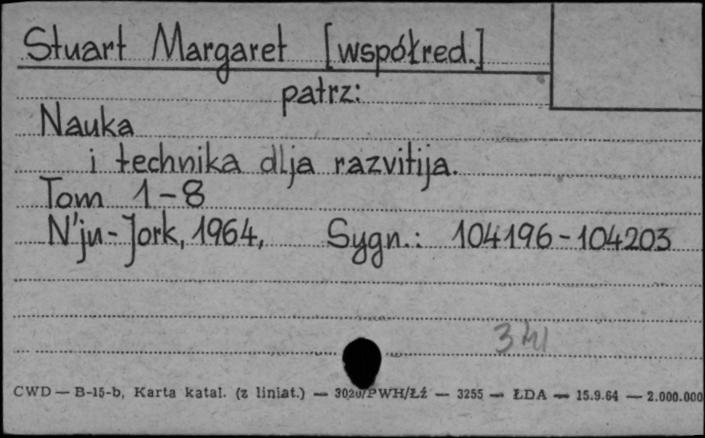 Stuart Margaret [współred.]
patrz:
Nauka
i technika dlja razvitija.
Tom 1-8
N'ju-Jork, 1964, Sygn.: 104196-104203
CWD — B-15-b, Karta katal. (z liniat.) — 3020/PWH/Łź — 3255 — ŁDA — 15.9.64 — 2.000.000